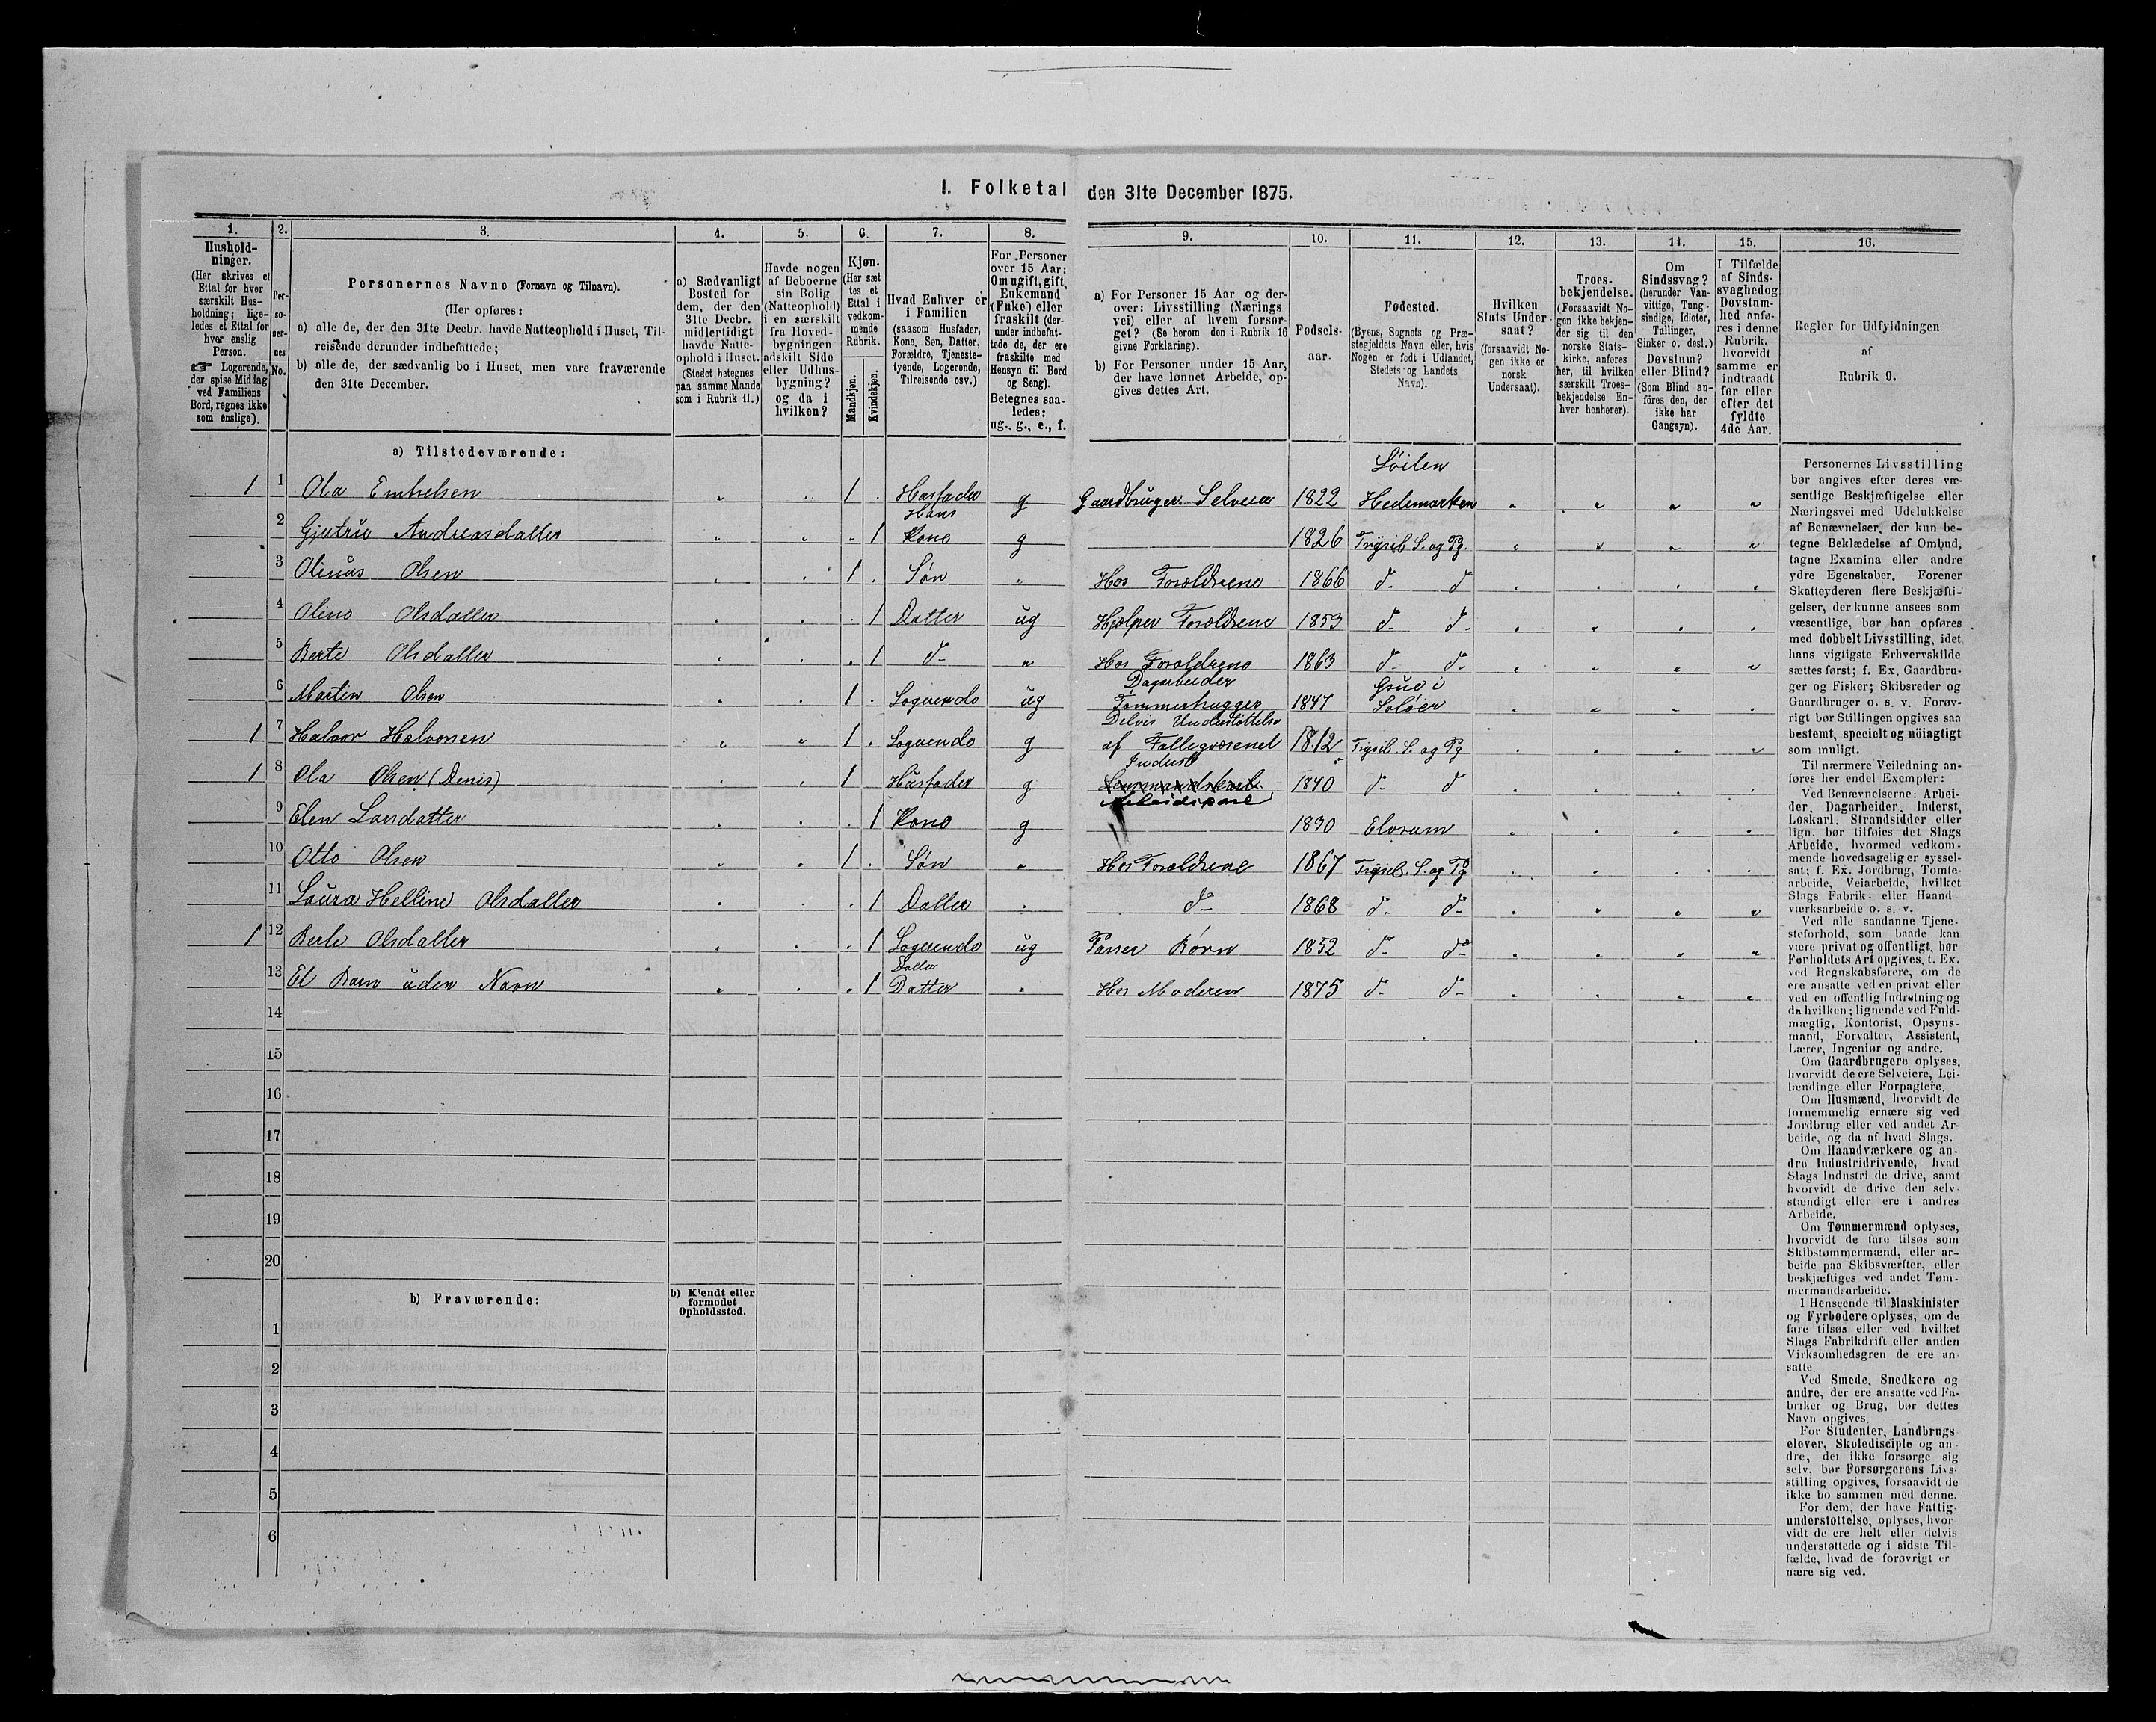 1. Folketal den 31te December 1875.
1.
Hushold-
ninger.
(Her skrives et
Ettal for hver
særskilt Hus-
holdning; lige-
ledes et Ettal for
hver enslig
Person.
☞ Logerende,
der spise Middag
ved Familiens
Bord, regnes ikke
som enslige).
2.
Per-
so-
ner-
nes
No.
3.
Personernes Navne (Fornavn og Tilnavn).
(Her opføres:
a) alle de, der den 31te Decbr. havde Natteophold i Huset, Til-
reisende derunder indbefattede;
b) alle de, der sædvanlig bo i Huset, men vare fraværende
den 31te December.
4.
a) Sædvanligt
Bosted for
dem, der den
31te Decbr.
midlertidigt
havde Natte-
ophold i Huset.
(Stedet betegnes
paa samme Maade
som i Rubrik 11.)
5.
Havde nogen
af Beboerne
sin Bolig
(Natteophold)
i en særskilt
fra Hoved-
bygningen
adskilt Side
eller Udhus-
bygning?
og da i
hvilken?
6.
Kjøn.
(Her sæt
tes et
Ettal i
vedkom-
mende
Rubrik.
Mandkjøn.
Kvindekjøn.
7.
Hvad Enhver er
i Familien
(saasom Husfader,
Kone, Søn, Datter,
Forældre, Tjeneste-
tyende, Logerende,
Tilreisende osv.)
8.
For Personer
over 15 Aar:
Om ugift, gift,
Enkemand
(Enke) eller
fraskilt (der-
under indbefat-
tede de, der ere
fraskilte med
Hensyn til Bord
og Seng).
Betegnes saa-
ledes:
ug., g., e., f.
9.
a) For Personer 15 Aar og der-
over: Livsstilling (Nærings
vei) eller af hvem forsør-
get? (Se herom den i Rubrik 16
givne Forklaring).
b) For Personer under 15 Aar,
der have lønnet Arbeide, op-
gives dettes Art.
10.
Fødsels-
aar.
11.
Fødested.
(Byens, Sognets og Præ-
stegjeldets Navn eller, hvis
Nogen er født i Udlandet,
Stedets og Landets
Navn).
12.
Hvilken
Stats Under-
saat?
(forsaavidt No-
gen ikke er
norsk
Undersaat).
13.
Troes-
bekjendelse.
(Forsaavidt No-
gen ikke bekjen-
der sig til den
norske Stats-
kirke, anføres
her, til hvilken
særskilt Troes-
bekjendelse En-
hver henhører).
14.
Om
Sindssvag?
(herunder Van-
vittige, Tung-
sindige, Idioter,
Tullinger,
Sinker o. desl.)
Døvstum?
eller Blind?
(Som Blind an-
føres den, der
ikke har
Gangsyn).
15.
I Tilfælde
af Sinds-
svaghed og
Døvstum-
hed anfø-
res i denne
Rubrik,
hvorvidt
samme er
indtraadt
før eller
efter det
fyldte
4de Aar.
16.
Regler for Udfyldningen
af
Rubrik 9.
a) Tilstedeværende:
1 1 Ola Embretsen " " 1 . Husfader g Gaardbruger Selveier 1822 Løiten Hedemarken " " " "
2 Gjertrü Andreasdatter " " . 1 Hans Kone g 1826 Trysil S. og Pg. " " " "
3 Olinus Olsen " " 1 . Søn " Hos Forældrene 1866 d- d
4 Oline Olsdatter . 1 Datter ug Hjælper Forældrene 1853 d- d-
5 Berte Olsdatter . 1 d- " Hos Forældrene 1863 d- d-
6 Martin Olsen 1 . Logerende ug Dagarbeider Tømmerhugger 1847 Grue i Soløer
1 7 Halvor Halvorsen 1 . Logerende g Delvis Understøttelse af Fattigvæsenet 1812 Trysil S. og Pg
1 8 Ola Olsen (Denis) 1 Husfader g Inderst Arbeidskarl 1840 d- d
9 Elen Larsdatter . 1 Kone g 1830 Elverum
10 Otto Olsen 1 . Søn " Hos Forældrene 1867 Trysil S. og Pg
11 Laura Helline Olsdatter . 1 Datter d- 1868 d- d-
1 12 Berte Olsdatter . 1 Logerende ug Passer Børn 1852 d- d-
13 Et Barn uden Navn . 1 Datter Datter Hos Moderen 1875 d- d-
14
15
16
17
18
19
20
b) Fraværende:
b) Kjendt eller
formodet
Opholdssted.
1
2
3
4
5
6
Personernes Livsstilling
bør angives efter deres væ-
sentlige Beskjæftigelse eller
Næringsvei med Udelukkelse
af Benævnelser, der kun be-
tegne Beklædelse af Ombud,
tagne Examina eller andre
ydre Egenskaber. Forener
Skatteyderen flere Beskjæfti-
gelser, der kunne ansees som
væsentlige, bør han opføres
med dobbelt Livsstilling, idet
hans vigtigste Erhvervskilde
sættes først; f. Ex. Gaardbru-
ger og Fisker; Skibsreder og
Gaardbruger o. s. v. Forøv-
rigt bør Stillingen opgives saa
bestemt, specielt og nöiagtigt
som muligt.
Til nærmere Veiledning an-
føres her endel Exempler:
Ved Benævnelserne: Arbei-
der, Dagarbeider, Inderst,
Løskarl, Strandsidder eller
lign. bør tilføies det Slags
Arbeide, hvormed vedkom-
mende hovedsagelig er syssel-
sat; f. Ex. Jordbrug, Tomte-
arbeide, Veiarbeide, hvilket
Slags Fabrik- eller Haand
værksarbeide o. s. v.
Ved alle saadanne Tjene-
steforhold, som baade kan
være privat og offentligt, bør
Forholdets Art opgives, t. Ex.
ved Regnskabsførere, om de
ere ansatte ved en privat eller
ved en offentlig Indretning og
da hvilken; lignende ved Fuld-
mægtig, Kontorist, Opsyns-
mand, Forvalter, Assistent,
Lærer, Ingeniør og andre.
Om Gaardbrugere oplyses,
hvorvidt de ere Selveiere, Lei-
lændinge eller Forpagtere.
Om Husmænd, hvorvidt de
fornemmelig ernære sig ved
Jordbrug eller ved andet Ar-
beide, og da af hvad Slags.
Om Haandværkere og an-
dre Industridrivende, hvad
Slags Industri de drive, samt
hvorvidt de drive den selv-
stændigt eller ere i andres
Arbeide.
Om Tømmermænd oplyses,
hvorvidt de fare tilsøs som
Skibstømmermænd, eller ar-
beide paa Skibsværfter, eller
beskjæftiges ved andet Tøm-
mermandsarbeide.
I Henseende til Maskinister
og Fyrbødere oplyses, om de
fare tilsøs eller ved hvilket
Slags Fabrikdrift eller anden
Virksomhedsgren de ere an-
satte.
Ved Smede, Snedkere og
andre, der ere ansatte ved Fa-
briker og Brug, bør dettes
Navn opgives.
For Studenter, Landbrugs
elever, Skoledisciple og an-
dre, der ikke forsørge sig
selv, bør Forsørgerens Livs-
stilling opgives, forsaavidt de
ikke bo sammen med denne.
For dem, der have Fattig-
understøttelse, oplyses, hvor
vidt de ere helt eller delvis
understøttede og i sidste Til-
fælde, hvad de forøvrigt er
nære sig ved.